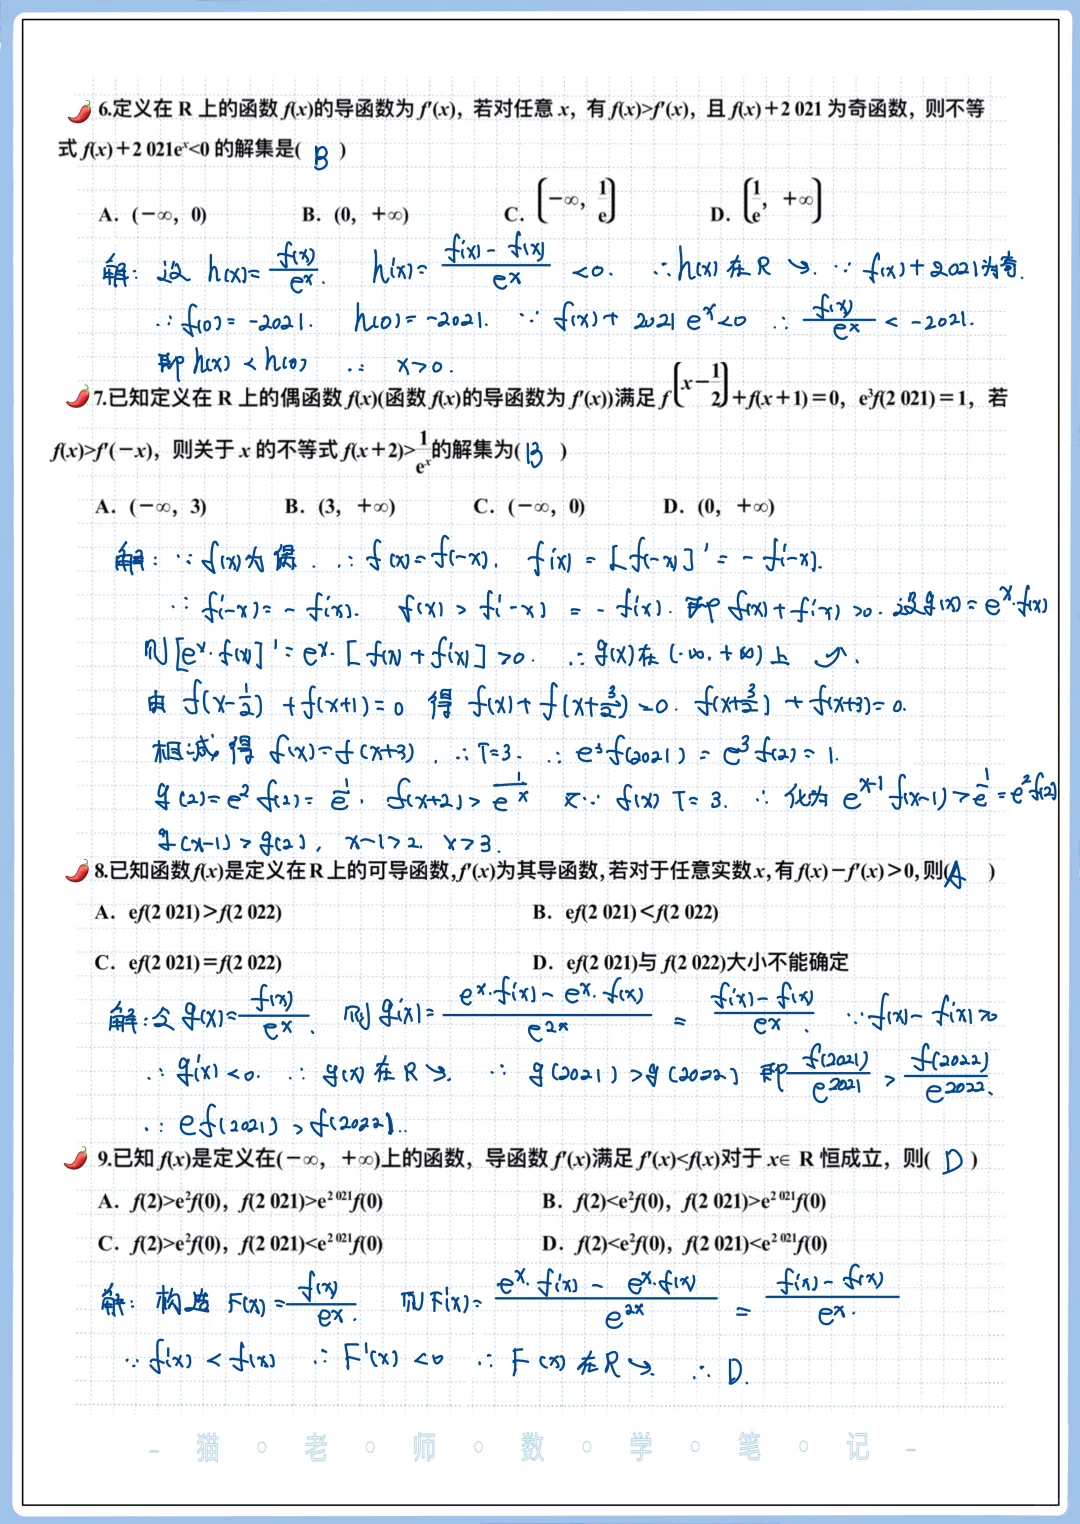 6.定义在 R 上的函数 f(x)的导函数为 f′(x)，若对任意 x，有 f(x)>f′(x)，且 f(x)＋2 021 为奇函数，则不等
式 f(x)＋2 021eˣ<0 的解集是( B )
A．(－∞，0) B．(0，＋∞) C．(－∞，1/e) D．(1/e，＋∞)
解：设 h(x)=f(x)/eˣ. h′(x)=(f′(x)-f(x))/eˣ <0. ∴h(x) 在 R ↘. ∵ f(x)+2021为奇.
∴f(0)=-2021. h(0)=-2021. ∵ f(x)+2021eˣ<0 ∴ f(x)/eˣ < -2021.
即 h(x)<h(0) ∴ x>0.
7.已知定义在 R 上的偶函数 f(x)(函数 f(x)的导函数为 f′(x))满足 f(x－1/2)＋f(x＋1)＝0，e³f(2 021)＝1，若
f(x)>f′(－x)，则关于 x 的不等式 f(x＋2)>1/eˣ的解集为( B )
A．(－∞，3) B．(3，＋∞) C．(－∞，0) D．(0，＋∞)
解：∵ f(x)为偶. ∴ f(x)=f(-x). f′(x)=[f(-x)]′=-f′(-x).
∴ f′(-x)=-f′(x). f(x)>f′(-x)=-f′(x). 即 f(x)+f′(x)>0. 设g(x)=eˣ·f(x)
则[eˣ·f(x)]′=eˣ·[f(x)+f′(x)]>0. ∴ g(x)在(-∞,+∞)上 ↗.
由 f(x-1/2)+f(x+1)=0 得 f(x)+f(x+3/2)=0. f(x+3/2)+f(x+3)=0.
相减得 f(x)=f(x+3). ∴T=3. ∴ e³f(2021)=e³f(2)=1.
g(2)=e²f(2)=1/e. f(x+2)>1/eˣ 又∵ f(x) T=3. ∴ 化为 eˣ⁻¹f(x-1)>1/e=e²f(2)
g(x-1)>g(2), x-1>2. x>3.
8.已知函数f(x)是定义在R上的可导函数,f′(x)为其导函数,若对于任意实数x,有f(x)－f′(x)>0,则( A )
A．ef(2 021)>f(2 022) B．ef(2 021)<f(2 022)
C．ef(2 021)＝f(2 022) D．ef(2 021)与 f(2 022)大小不能确定
解：令 g(x)=f(x)/eˣ. 则 g′(x)=(eˣ·f′(x)-eˣ·f(x))/e²ˣ = (f′(x)-f(x))/eˣ. ∵f(x)-f′(x)>0
∴ g′(x)<0. ∴ g(x)在 R ↘. ∴ g(2021)>g(2022) 即 f(2021)/e²⁰²¹ > f(2022)/e²⁰²².
∴ ef(2021)>f(2022).
9.已知 f(x)是定义在(－∞，＋∞)上的函数，导函数 f′(x)满足 f′(x)<f(x)对于 x∈ R 恒成立，则( D )
A．f(2)>e²f(0)，f(2 021)>e²⁰²¹f(0) B．f(2)<e²f(0)，f(2 021)>e²⁰²¹f(0)
C．f(2)>e²f(0)，f(2 021)<e²⁰²¹f(0) D．f(2)<e²f(0)，f(2 021)<e²⁰²¹f(0)
解：构造 F(x)=f(x)/eˣ. 则F′(x)=(eˣ·f′(x)-eˣ·f(x))/e²ˣ = (f′(x)-f(x))/eˣ.
∵ f′(x)<f(x) ∴ F′(x)<0 ∴ F(x)在R↘. ∴ D.
- 猫 · 老 · 师 · 数 · 学 · 笔 · 记 -